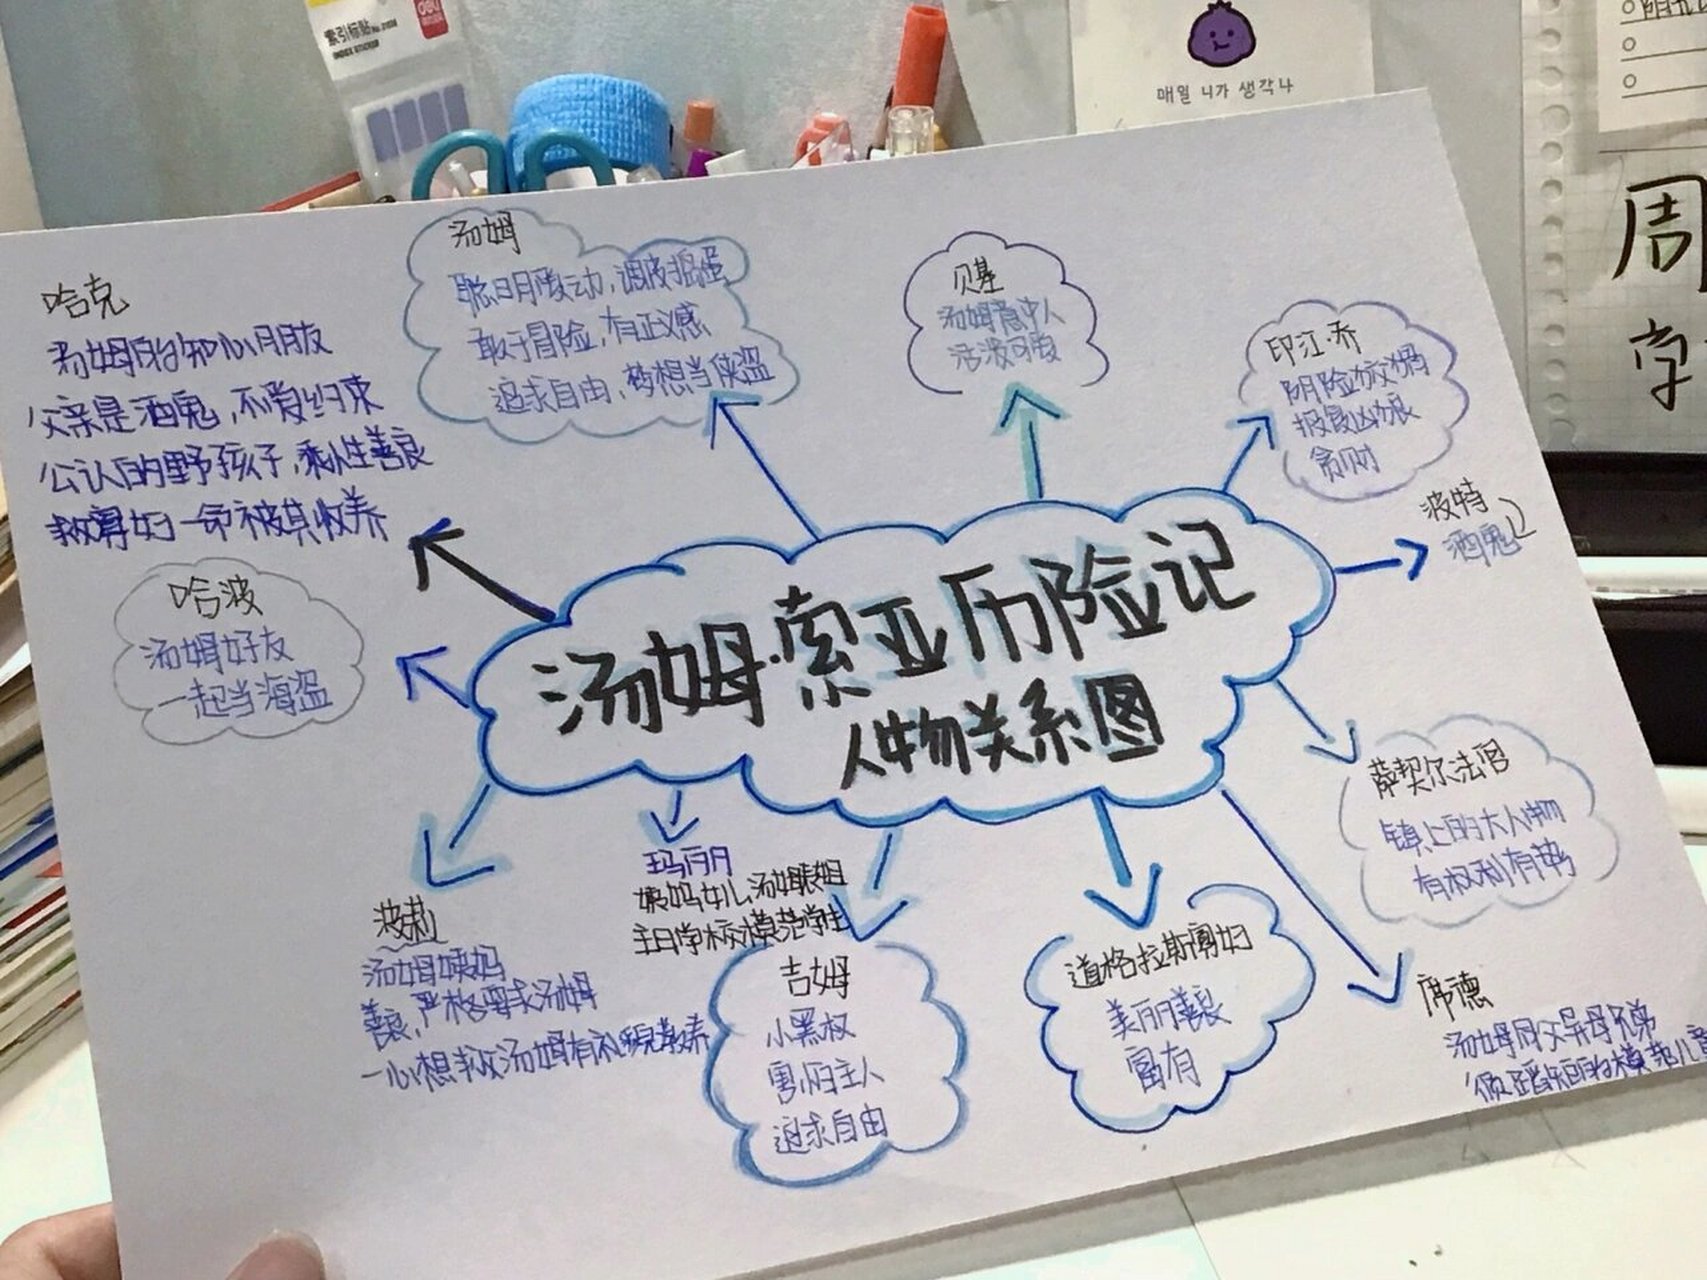 索引标贴
INDEX STICKER
deli
매일 니가 생각나
周
学
汤姆·索亚历险记
人物关系图
哈克
汤姆的知心朋友
父亲是酒鬼,不爱约束
公认的野孩子,乖性善良
救寡妇一命被其收养
汤姆
聪明爱动,调皮捣蛋
敢于冒险,有正义感
追求自由,梦想当侠盗
贝基
汤姆意中人
活泼可爱
印江·乔
阴险狡猾
报复凶狠
贪财
波特
酒鬼
哈波
汤姆好友
一起当海盗
萨契尔法官
镇上的大人物
有权利有势
波莉
汤姆姨妈
善良,严格要求汤姆
一心想教汤姆有礼貌教养
玛丽
姨妈女儿,汤姆表姐
主日学校模范学生
吉姆
小黑奴
害怕主人
追求自由
道格拉斯寡妇
美丽善良
富有
席德
汤姆同父异母兄弟
循蹈矩的模范儿童